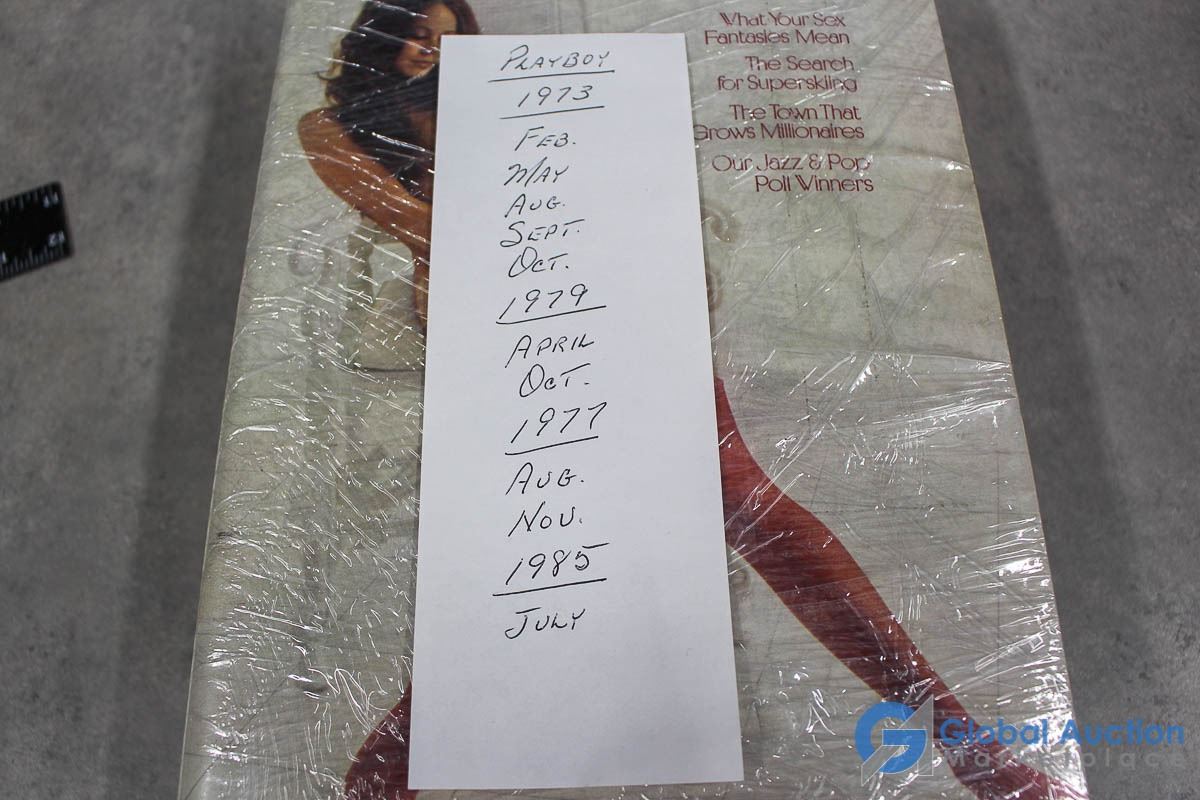 What Your Sex
Fantasies Mean
The Search
for Superskiing
The Town That
Grows Millionaires
Our Jazz & Pop
Poll Winners
PLAYBOY
1973
FEB.
MAY
AUG.
SEPT.
OCT.
1979
APRIL
OCT.
1977
AUG.
NOV.
1985
JULY
Global Auction
Marketplace